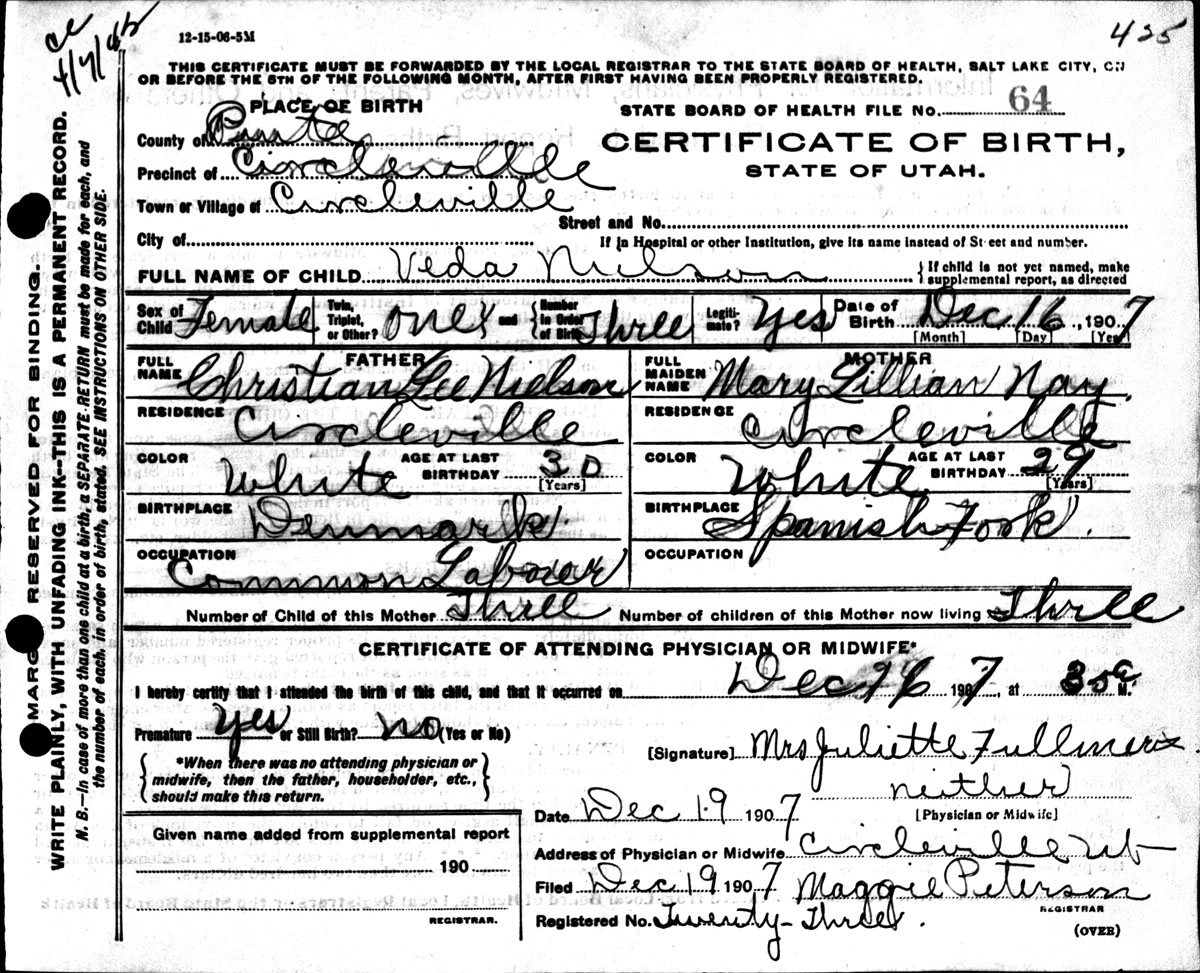 12-15-06-5M
425
THIS CERTIFICATE MUST BE FORWARDED BY THE LOCAL REGISTRAR TO THE STATE BOARD OF HEALTH, SALT LAKE CITY, ON
OR BEFORE THE 5TH OF THE FOLLOWING MONTH, AFTER FIRST HAVING BEEN PROPERLY REGISTERED.
PLACE OF BIRTH
STATE BOARD OF HEALTH FILE No. 64
County of Piute
CERTIFICATE OF BIRTH,
Precinct of Circleville
STATE OF UTAH.
Town or Village of Circleville
Street and No.
City of
If in Hospital or other Institution, give its name instead of Street and number.
FULL NAME OF CHILD Veda Nielson
{If child is not yet named, make supplemental report, as directed
Sex of Child Female
Twin, Triplet, or Other? One} and {Number in Order of Birth Three
Legitimate? Yes
Date of Birth Dec 16, 1907
[Month] [Day] [Year]
FATHER
FULL NAME Christian Lee Nielson
MOTHER
FULL MAIDEN NAME Mary Lillian Nay.
RESIDENCE Circleville
RESIDENCE Circleville
COLOR White
AGE AT LAST BIRTHDAY 30 [Years]
COLOR White
AGE AT LAST BIRTHDAY 29 [Years]
BIRTHPLACE Denmark.
BIRTHPLACE Spanish Fork.
OCCUPATION Common Laborer
OCCUPATION
Number of Child of this Mother Three
Number of children of this Mother now living Three
CERTIFICATE OF ATTENDING PHYSICIAN OR MIDWIFE*
I hereby certify that I attended the birth of this child, and that it occurred on Dec 16 1907, at M.
Premature Yes or Still Birth? no (Yes or No)
[Signature] Mrs Juliette Fullmer
neither
[Physician or Midwife]
{*When there was no attending physician or
midwife, then the father, householder, etc.,
should make this return.}
Date Dec 19 1907
Given name added from supplemental report
190
REGISTRAR.
Address of Physician or Midwife Circleville Ut
Filed Dec 19 1907 Maggie Peterson
REGISTRAR
Registered No. Twenty-Three.
(OVER)
MARGIN RESERVED FOR BINDING.
WRITE PLAINLY, WITH UNFADING INK--THIS IS A PERMANENT RECORD.
N. B.—In case of more than one child at a birth, a SEPARATE RETURN must be made for each, and
the number of each, in order of birth, stated. SEE INSTRUCTIONS ON OTHER SIDE.